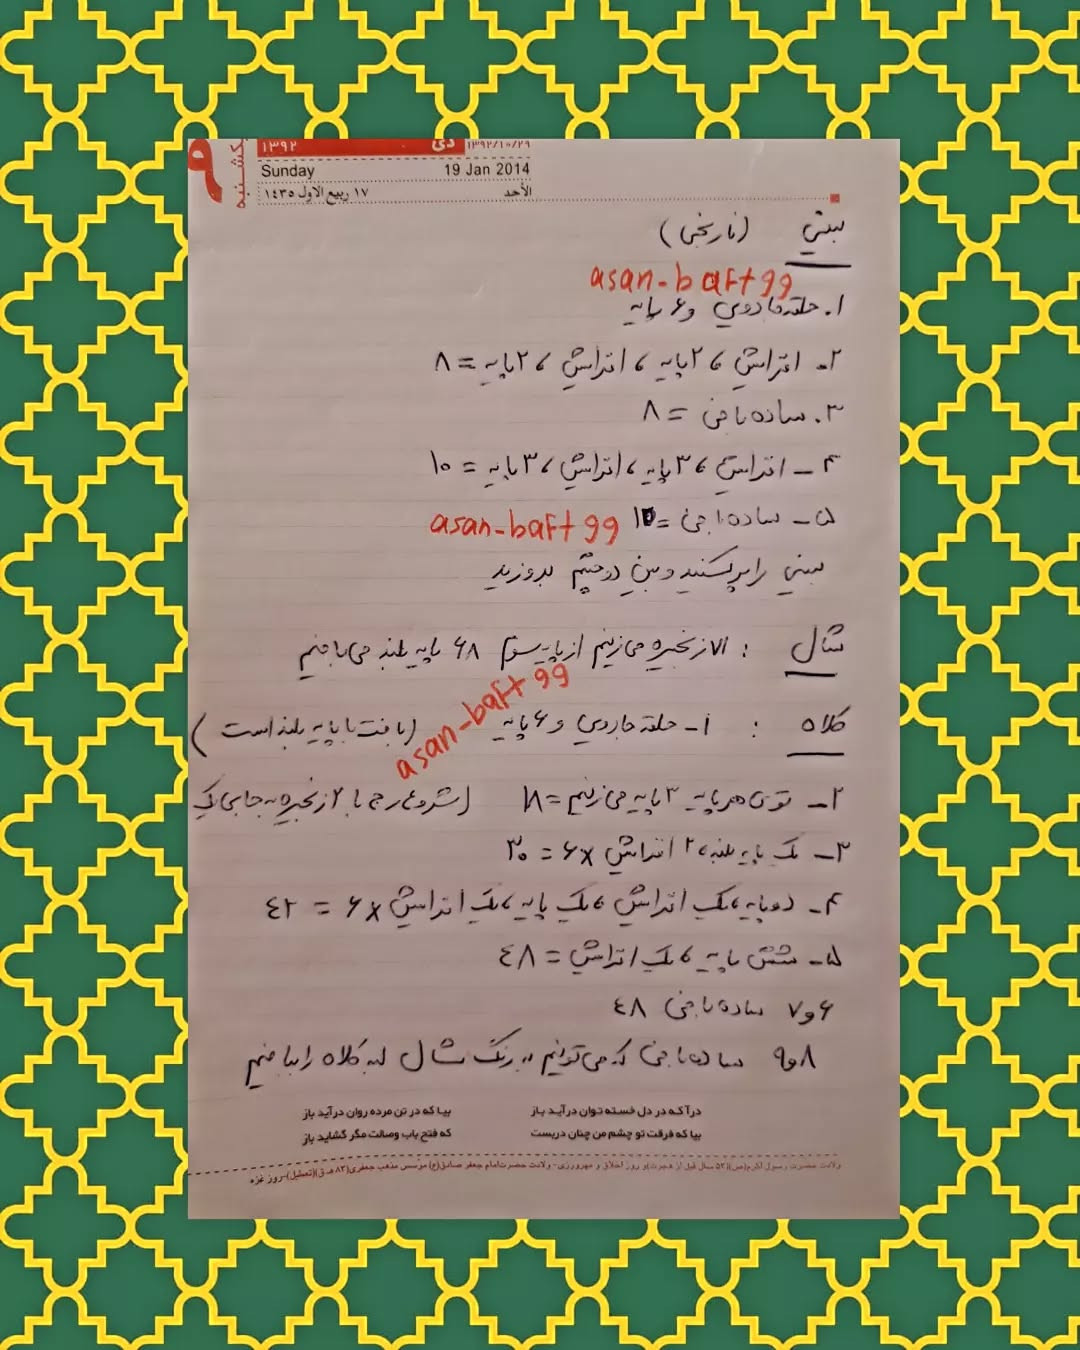 یکشنبه
۱۳۹۲ دی ۱۳۹۲/۱۰/۲۹
Sunday 19 Jan 2014
١٧ ربیع الاول ١٤٣٥ الأحد
بینی (نارنجی)
asan-baft 99
۱. حلقه جادویی و ۶ پایه
۲- افزایش، ۲ پایه، افزایش، ۲ پایه = ۸
۳. ساده بافی = ۸
۴- افزایش، ۳ پایه، افزایش، ۳ پایه = ۱۰
۵- ساده بافی = ۱۰
asan-baft 99
بینی را پر کنید و بین دو چشم بدوزید
شال : زنجیره می‌زنیم از پایه سوم ۶۸ پایه بلند می‌بافیم
asan-baft 99
کلاه : ۱- حلقه جادویی و ۶ پایه (بافت با پایه بلند است)
۲- توی هر پایه ۳ پایه می‌زنیم = ۱۸ (شروع هر رج با ۲ زنجیره به جای یک
۳- یک پایه بلند، ۲ افزایش ×۶ = ۳۰
۴- دو پایه، یک افزایش، یک پایه، یک افزایش ×۶ = ٤۲
۵- شش پایه، یک افزایش = ٤۸
۶ و ۷ ساده بافی ٤۸
۸ و ۹ ساده بافی که می‌توانیم به رنگ شال لبه کلاه را ببافیم
درآ که در دل خسته توان درآید باز بیا که در تن مرده روان درآید باز
بیا که فرقت تو چشم من چنان دربست که فتح باب وصالت مگر گشاید باز
ولادت حضرت رسول اکرم(ص)(۵۳ سال قبل از هجرت)و روز اخلاق و مهرورزی- ولادت حضرت‌امام جعفر صادق(ع) مؤسس مذهب جعفری(۸۳ ه.ق)(تعطیل)-روز غزه